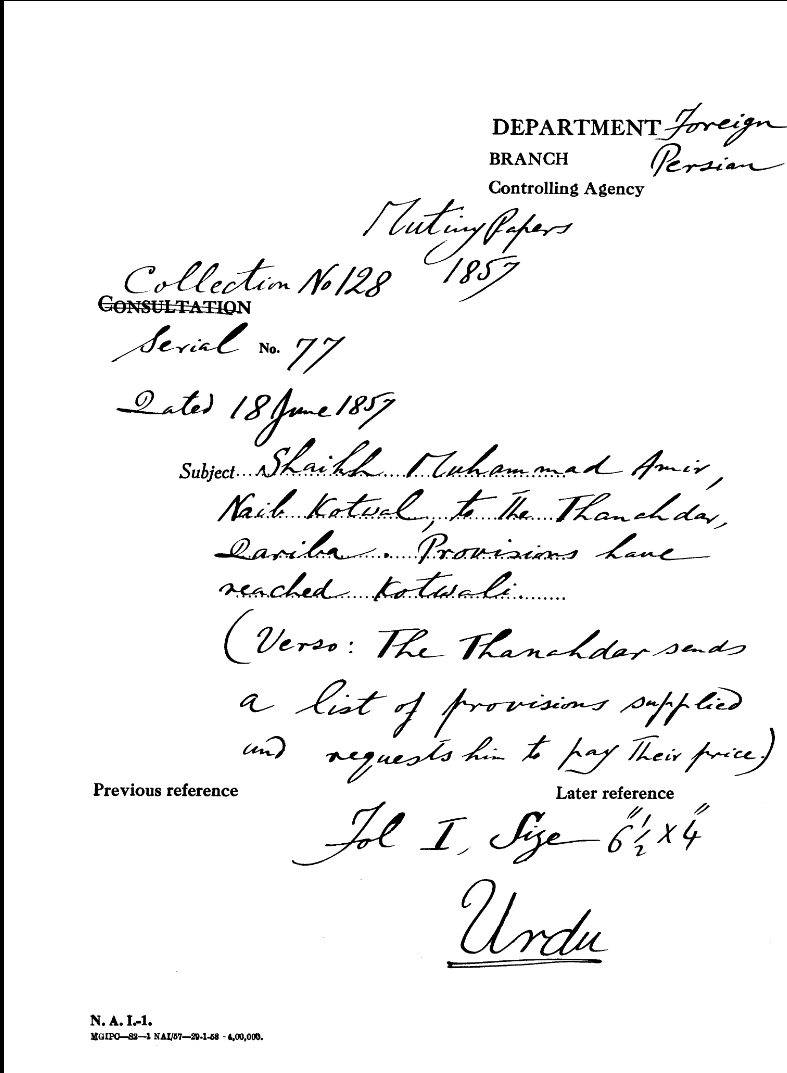 DEPARTMENT Foreign
BRANCH Persian
Controlling Agency
Mutiny Papers
1857
Collection No 128
CONSULTATION
Serial No. 77
Dated 18 June 1857
Subject Shaikh Muhammad Amir,
Naib Kotwal, to the Thanahdar,
Dariba. Provisions have
reached Kotwali.
(Verso: The Thanahdar sends
a list of provisions supplied
and requests him to pay their price.)
Previous reference Later reference
Fol I, Size 6½" x 4"
Urdu
N. A. I.-1.
MGIPC—S2—1 NAI/57—29-1-58 - 4,00,000.